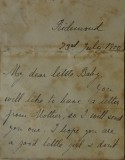 Richmond
22nd July
My dear little Baby,
You
will like to have a letter
from Mother, so I will send
you one. I hope you are
a good little girl & don't